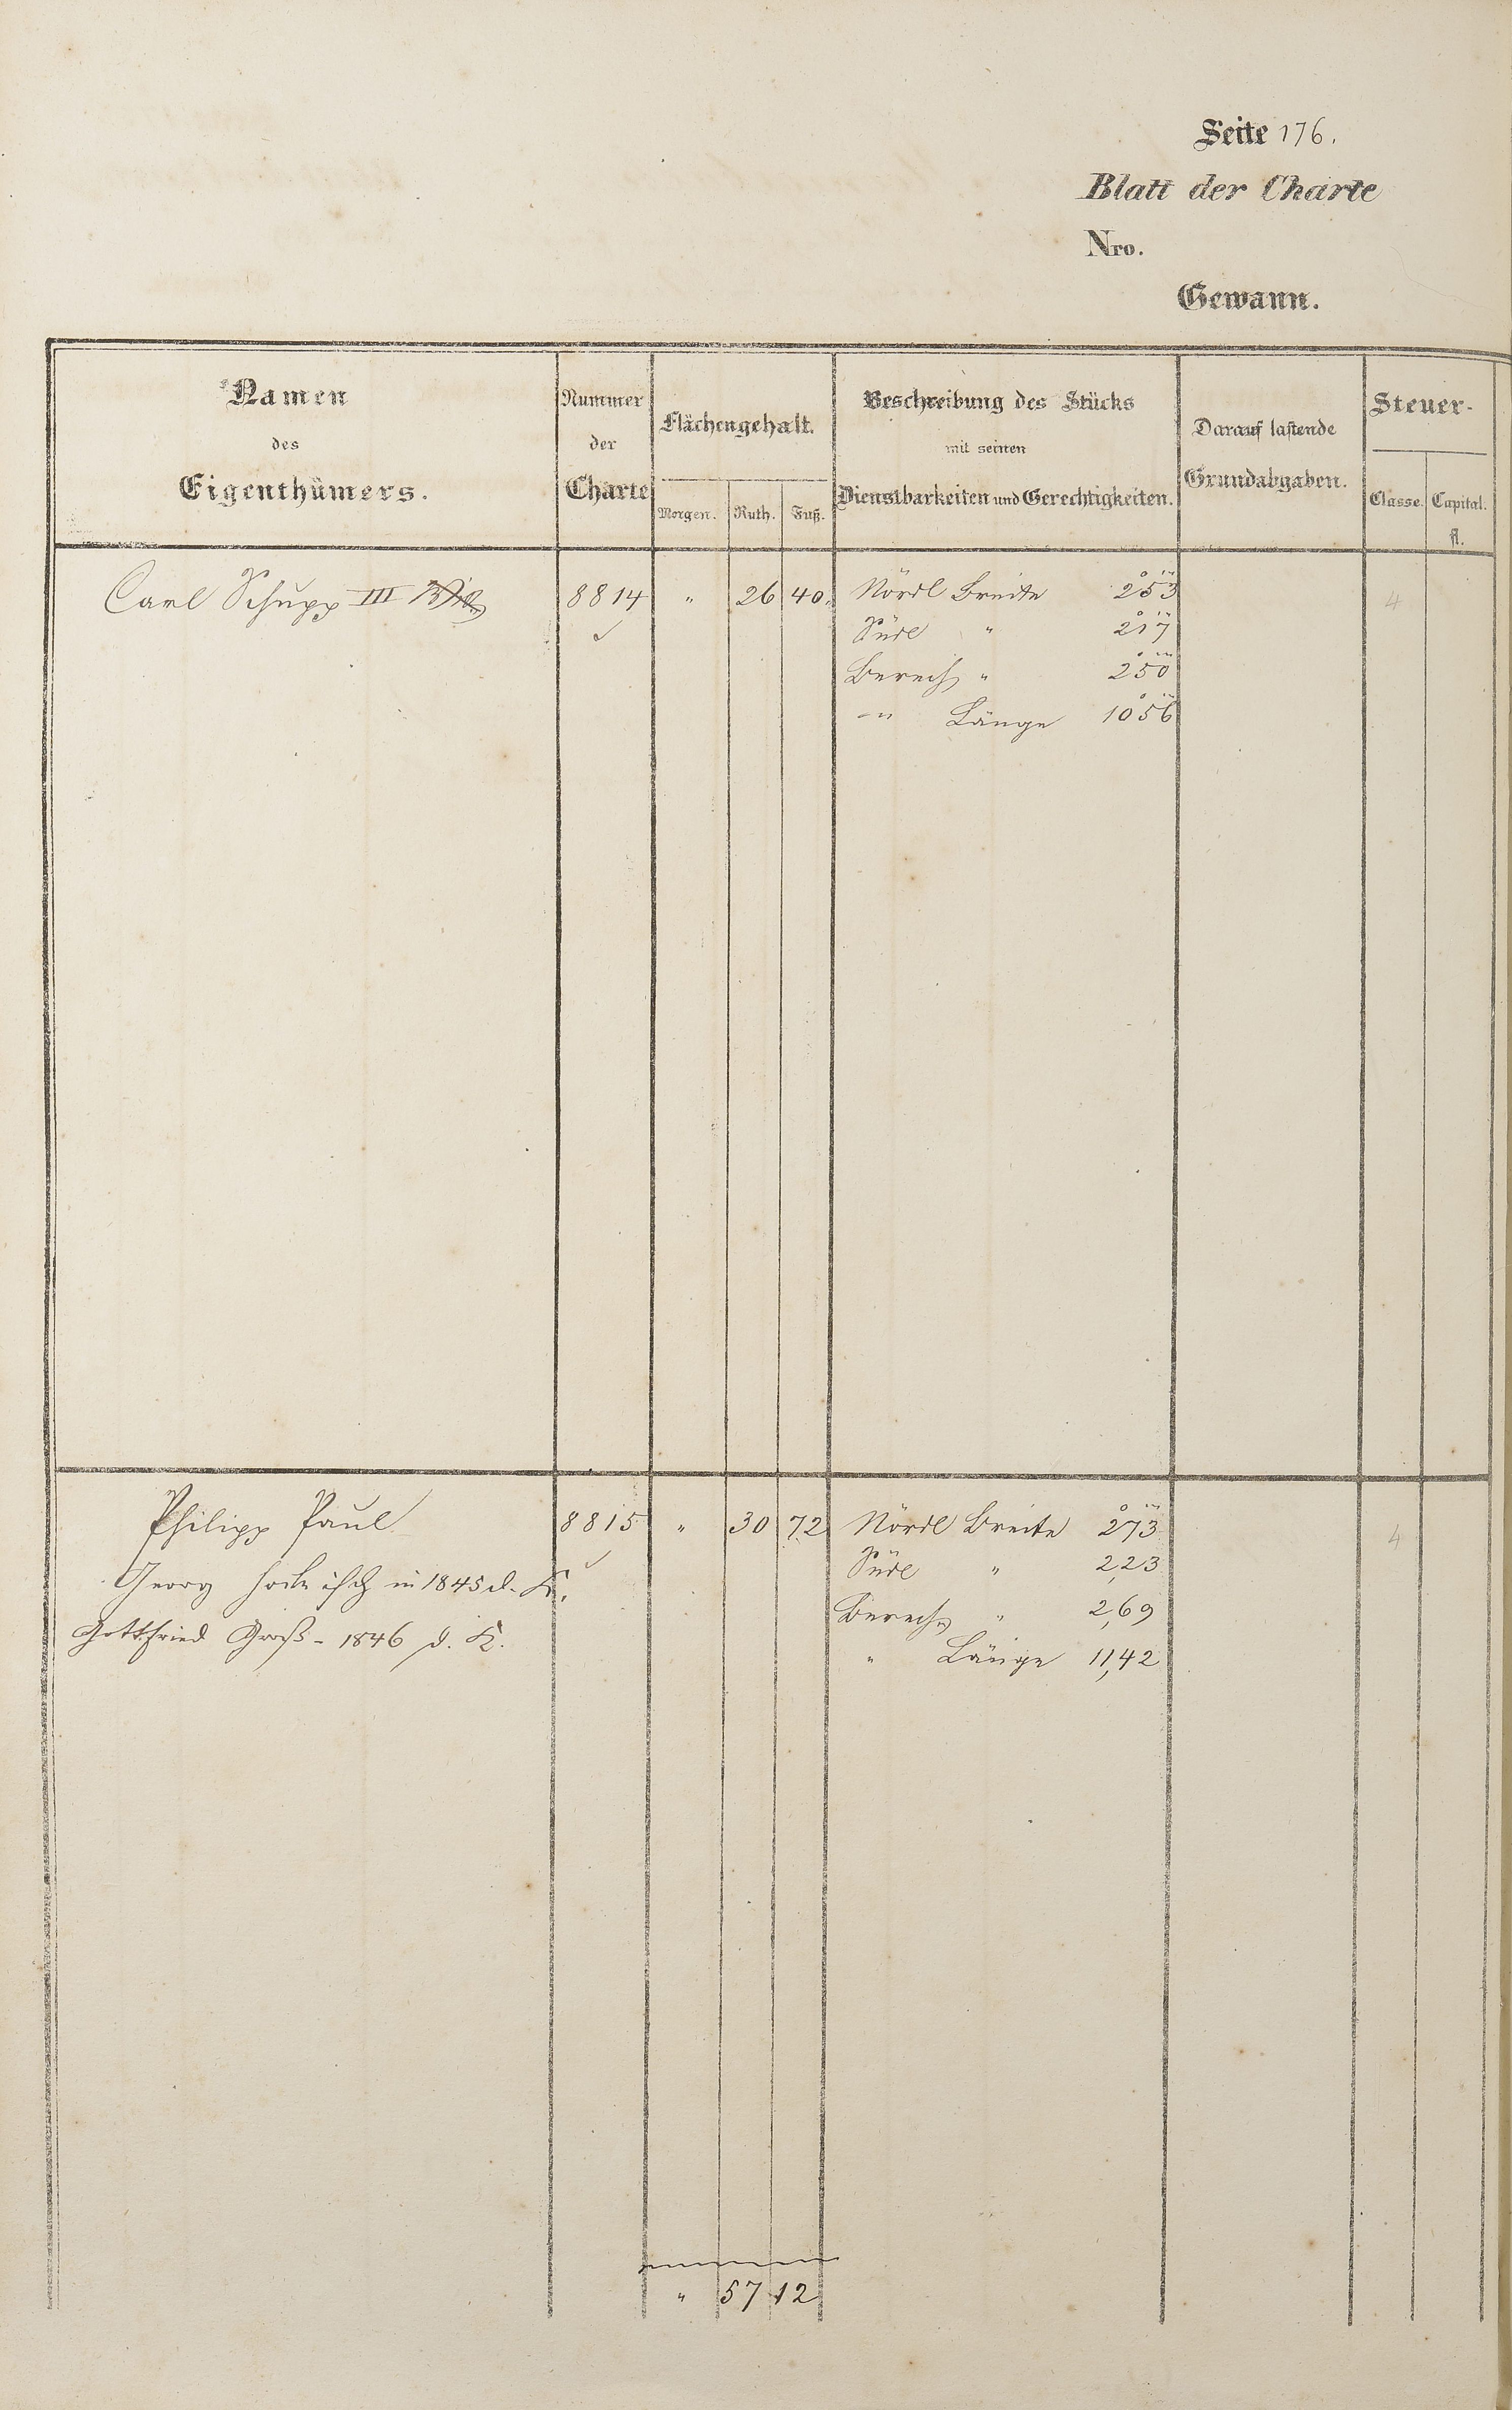 Seite 176.
Blatt der Charte
Nro.
Gewann.
Namen des Eigenthümers.
Nummer der Charte
Flächengehalt.
Morgen. Ruth. Fuß.
Beschreibung des Stücks mit seinen Dienstbarkeiten und Gerechtigkeiten.
Darauf lastende Grundabgaben.
Steuer-
Classe. Capital.
fl.
Carl Schupp III 8814 " 26 40 Nördl Breite 253 4
Südl " 217
Berech " 250
-"- Länge 1056
Philipp Paul 8815 " 30 72 Nördl Breite 273 4
Georg in 1845 d. K. Südl " 2,23
Gottfried Groß - 1846 d. K. Berech " 2,69
" Länge 11,42
" 57 12